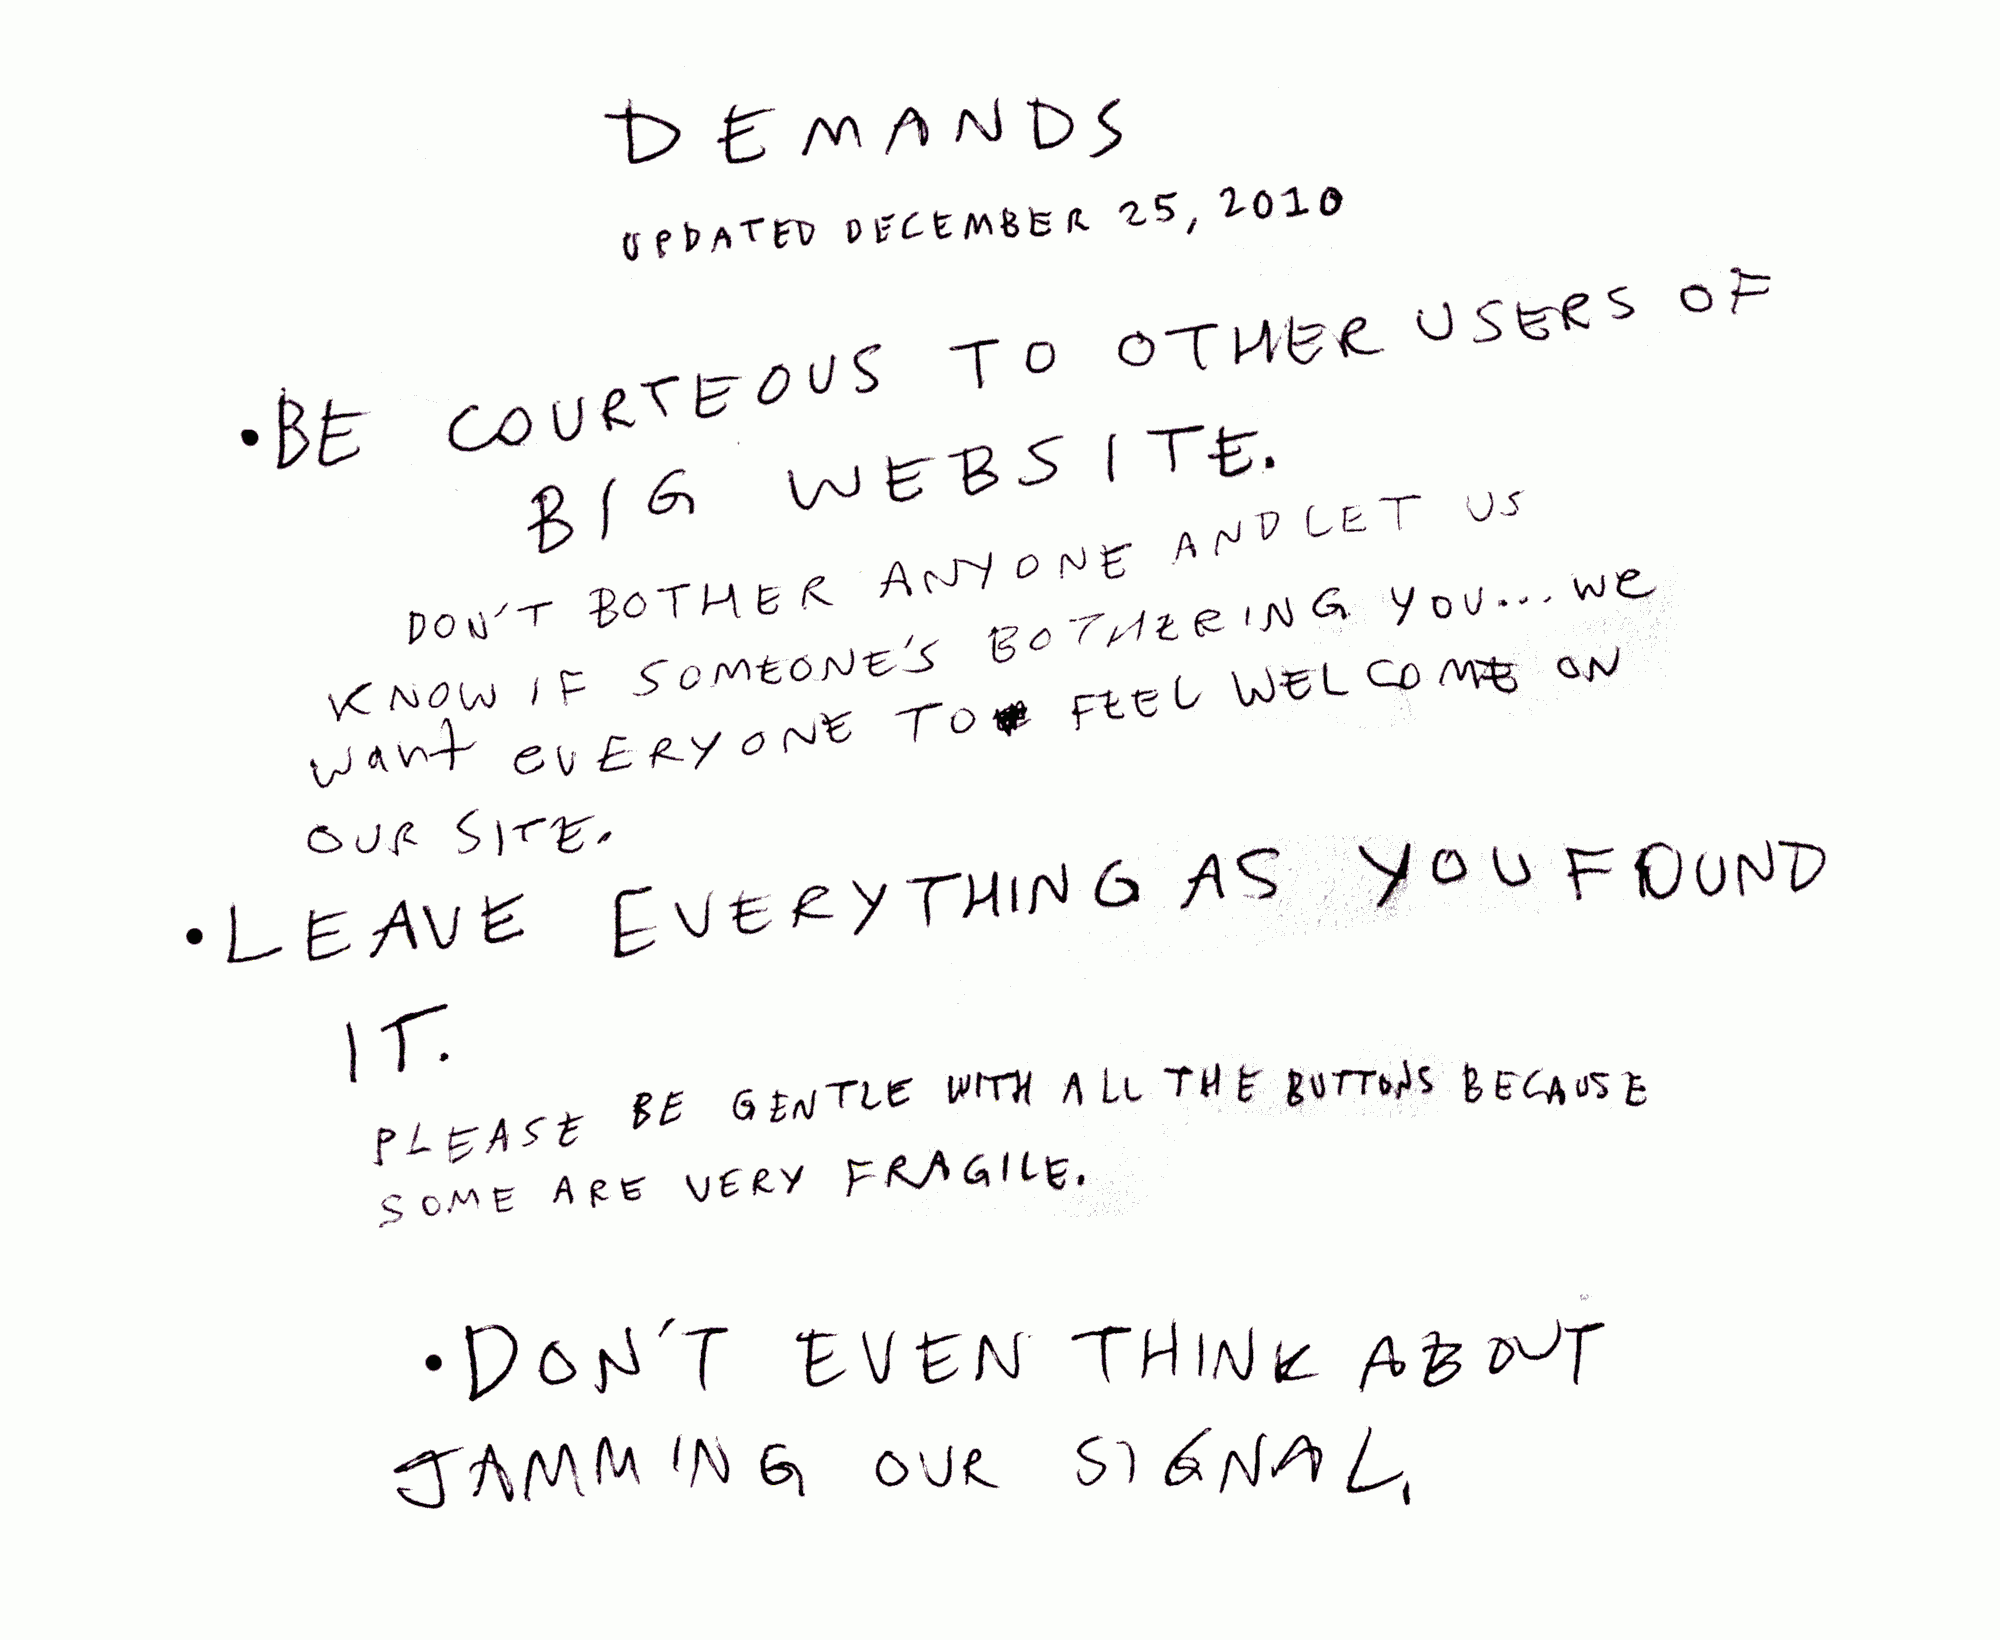 DEMANDS
UPDATED DECEMBER 25, 2010
• BE COURTEOUS TO OTHER USERS OF
BIG WEBSITE.
DON'T BOTHER ANYONE AND LET US
KNOW IF SOMEONE'S BOTHERING YOU... We
want eVERYONE TO FEEL WELCOME ON
OUR SITE.
• LEAVE EVERYTHING AS YOU FOUND
IT.
PLEASE BE GENTLE WITH ALL THE BUTTONS BECAUSE
SOME ARE VERY FRAGILE.
• DON'T EVEN THINK ABOUT
JAMMING OUR SIGNAL.